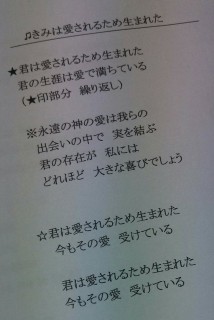 ♫きみは愛されるため生まれた
★君は愛されるため生まれた
君の生涯は愛で満ちている
(★印部分　繰り返し)
※永遠の神の愛は我らの
出会いの中で　実を結ぶ
君の存在が　私には
どれほど　大きな喜びでしょう
☆君は愛されるため生まれた
今もその愛　受けている
君は愛されるため生まれた
今もその愛　受けている